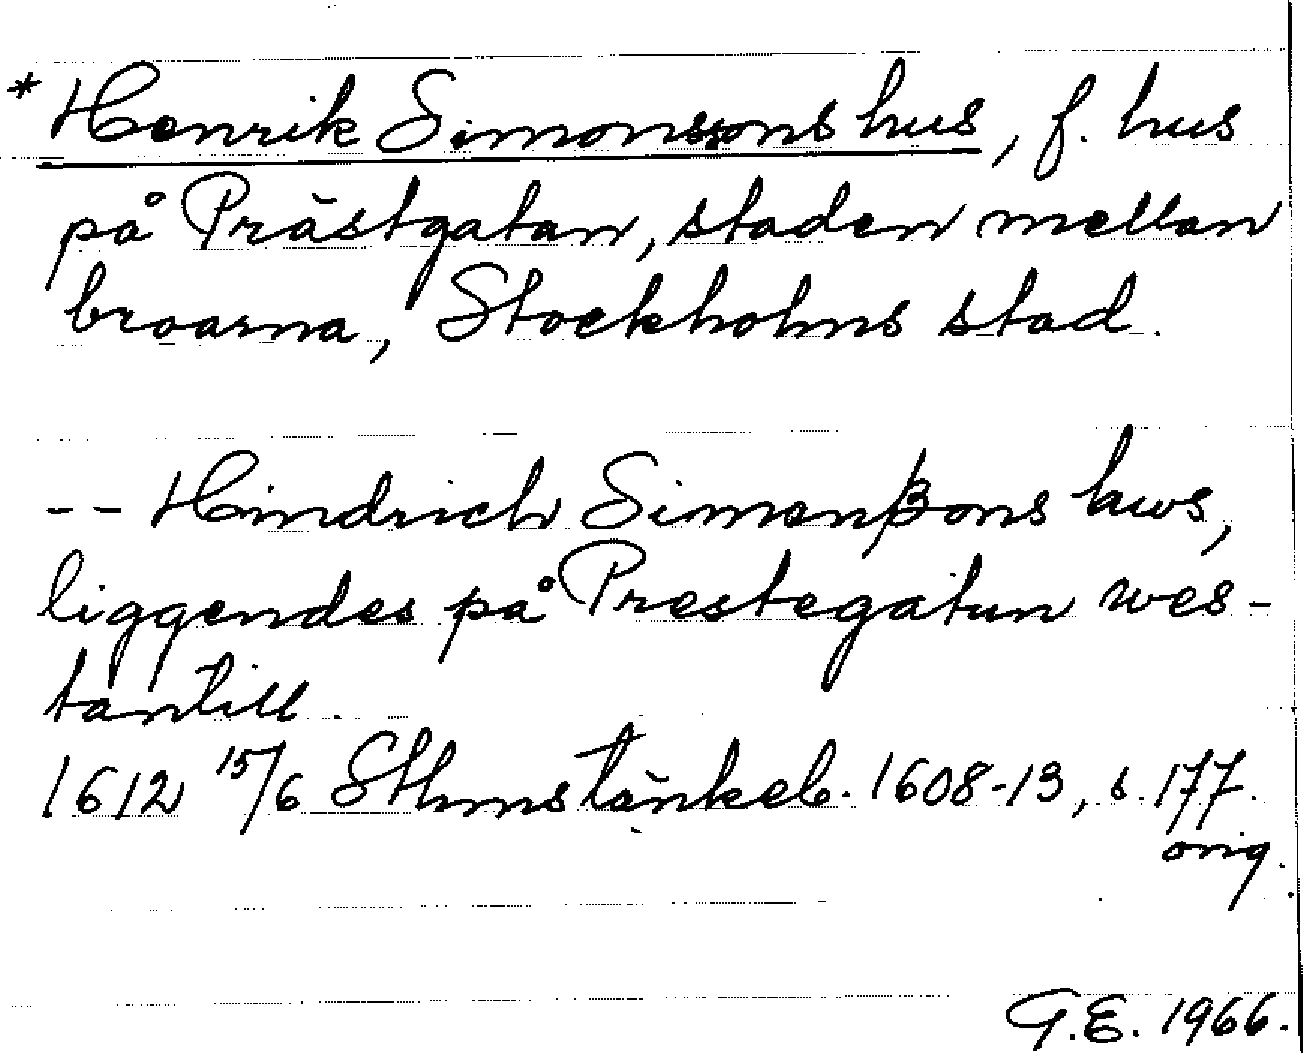 * Henrik Simonssons hus, f. hus
på Prästgatan, staden mellan
broarna, Stockholms stad.
-- Hindrich Simenßons hws,
liggendes på Prestegatun wes-
tantill.
1612 15/6 Sthms tänkeb. 1608-13, s. 177.
orig.
G.E. 1966.